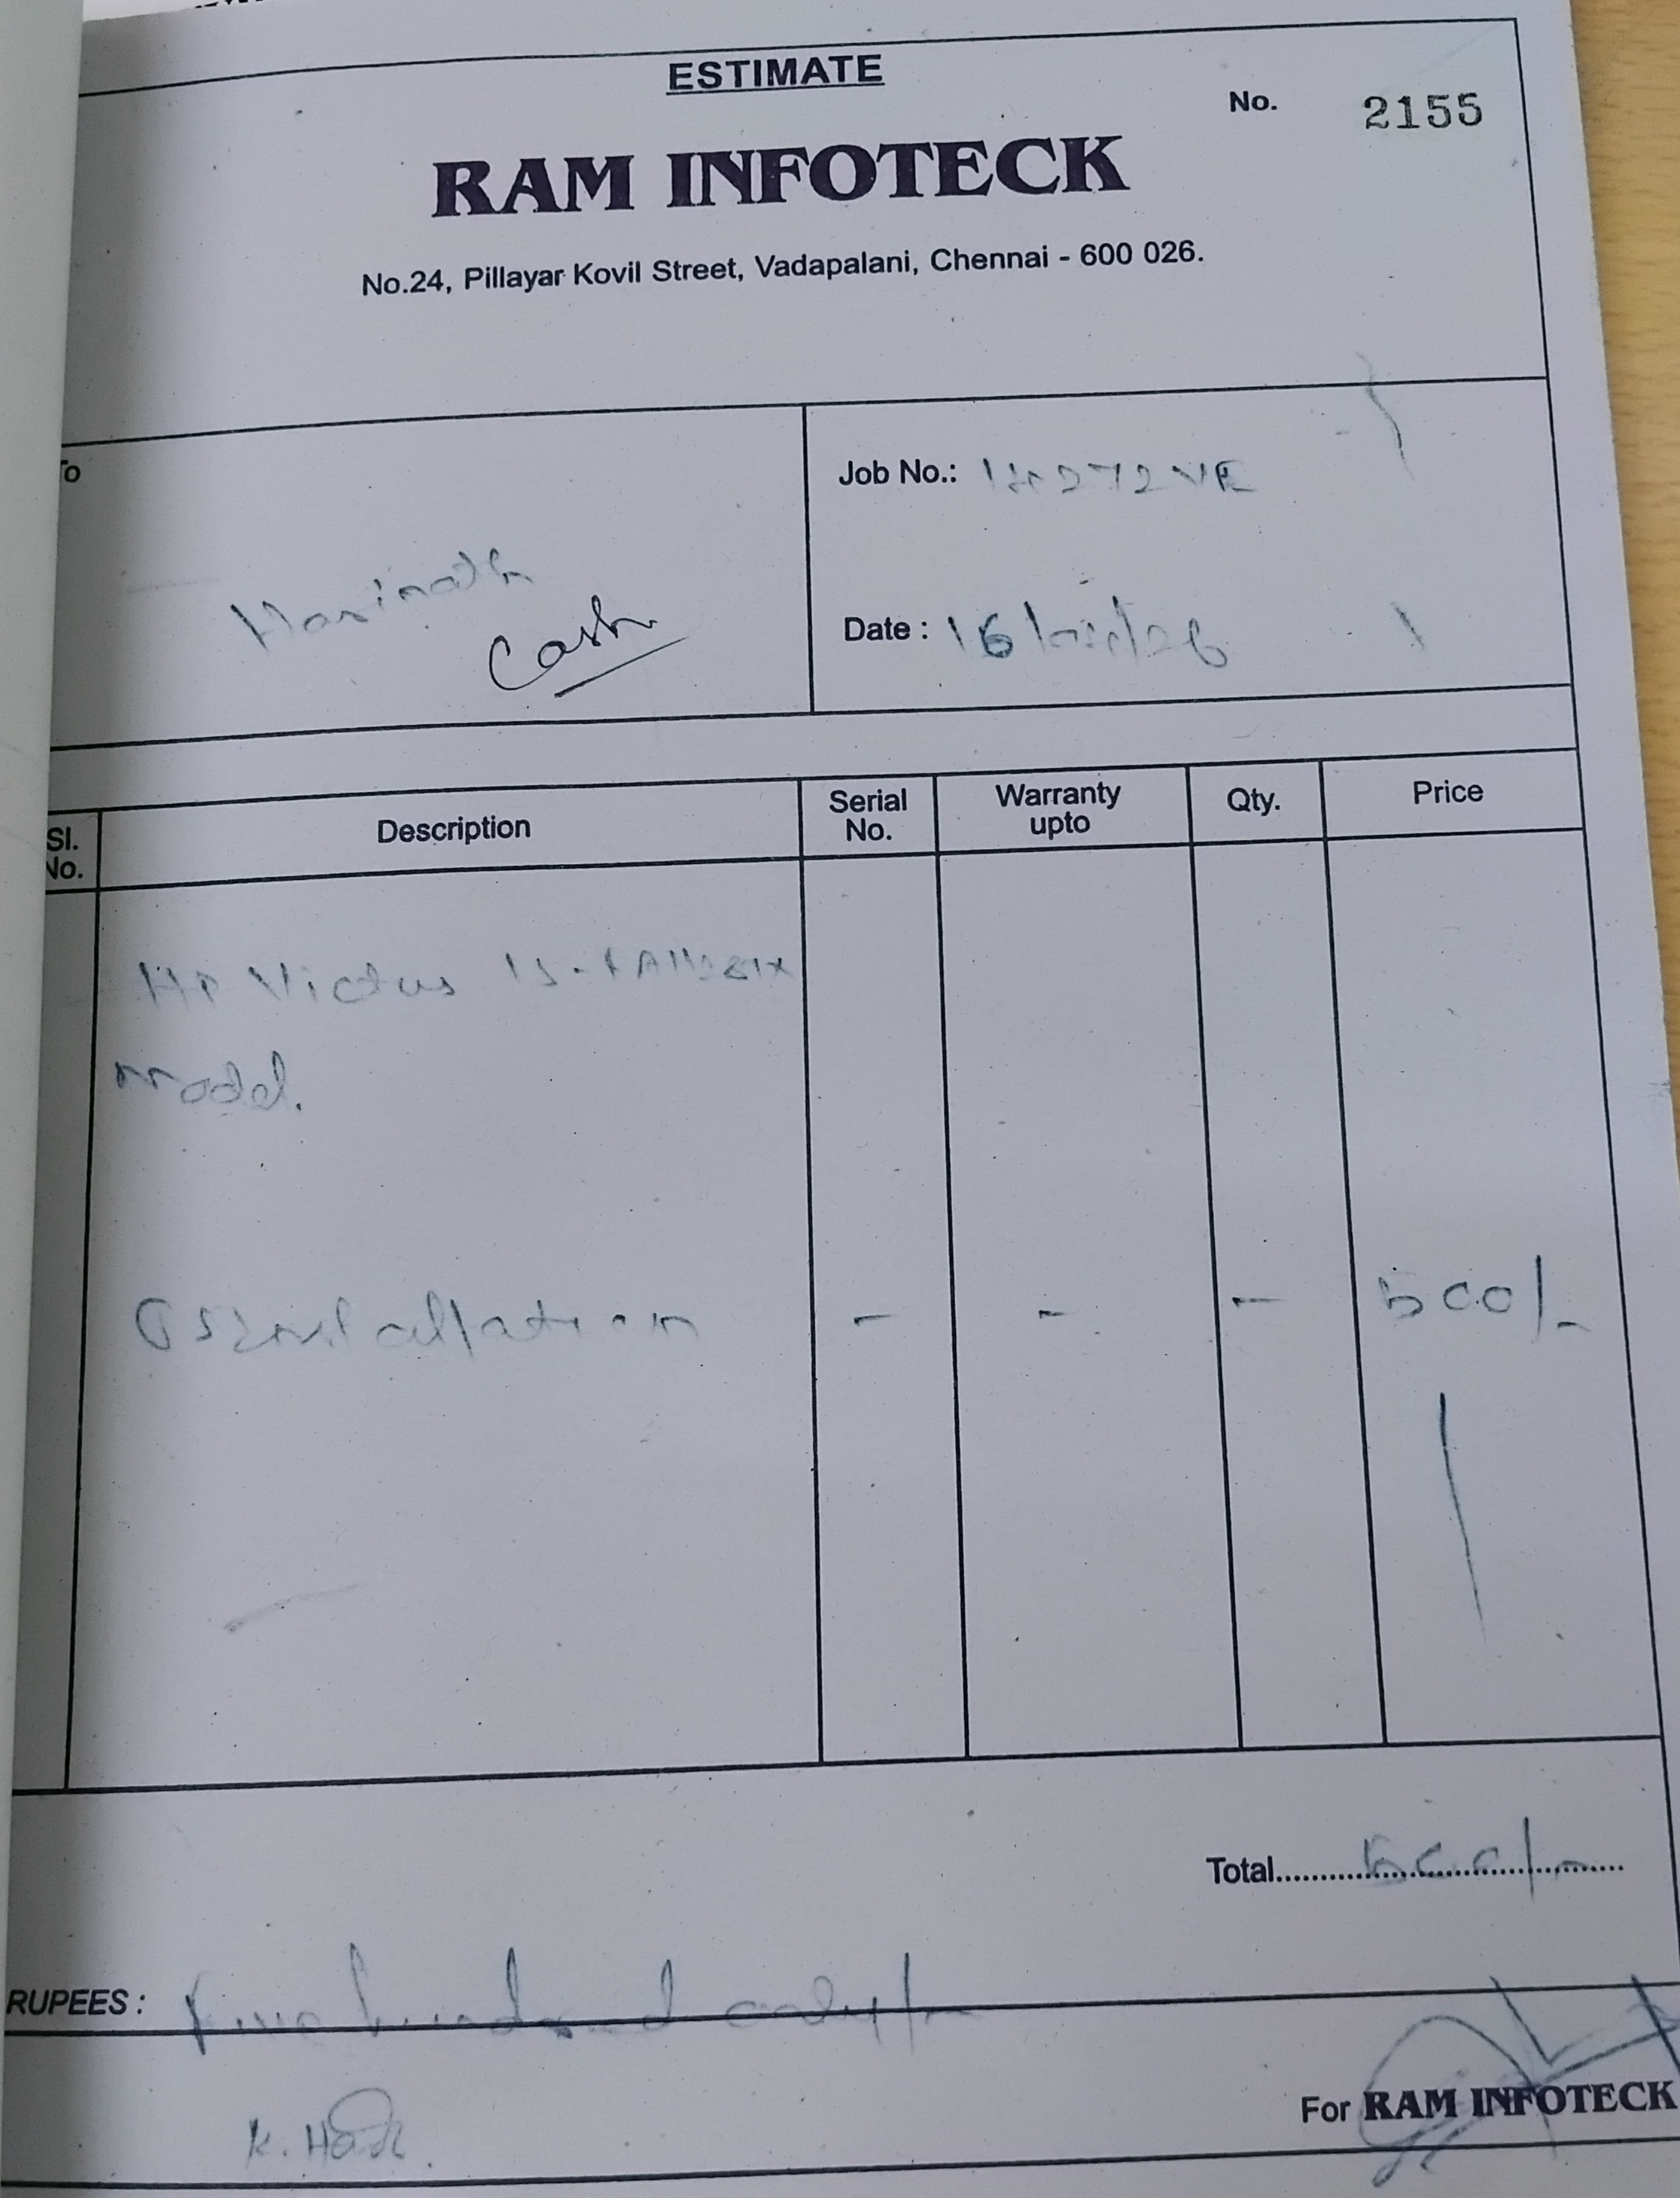 ESTIMATE
No. 2155
RAM INFOTECK
No.24, Pillayar Kovil Street, Vadapalani, Chennai - 600 026.
To
Job No.:
Harinath
Cash
Date : 16/ /26
Sl. No. Description Serial No. Warranty upto Qty. Price
HP Victus 15-
model.
OS Installation - - - 500/-
Total 500/-
RUPEES : Five hundred only/-
K. Hari
For RAM INFOTECK